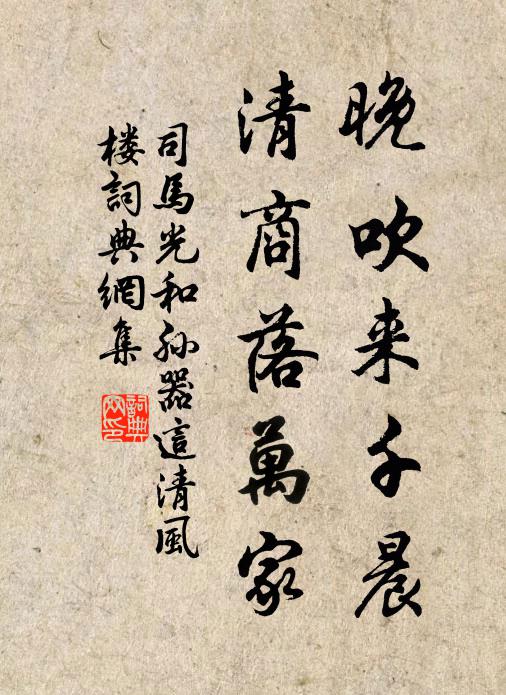 晚吹来千晨
清商落萬家
司馬光和孙器這清風
楼詞典網集
詞典网印